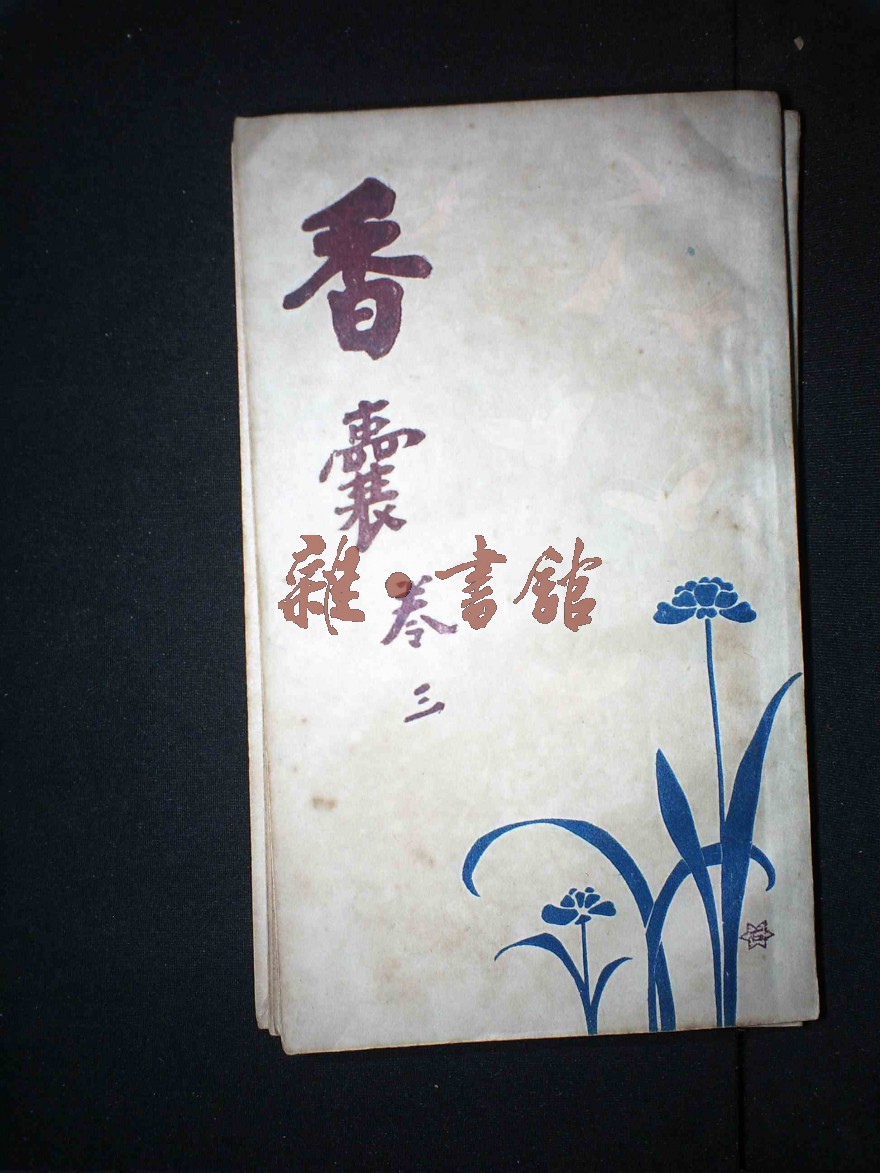 香囊
卷三
雜·書館